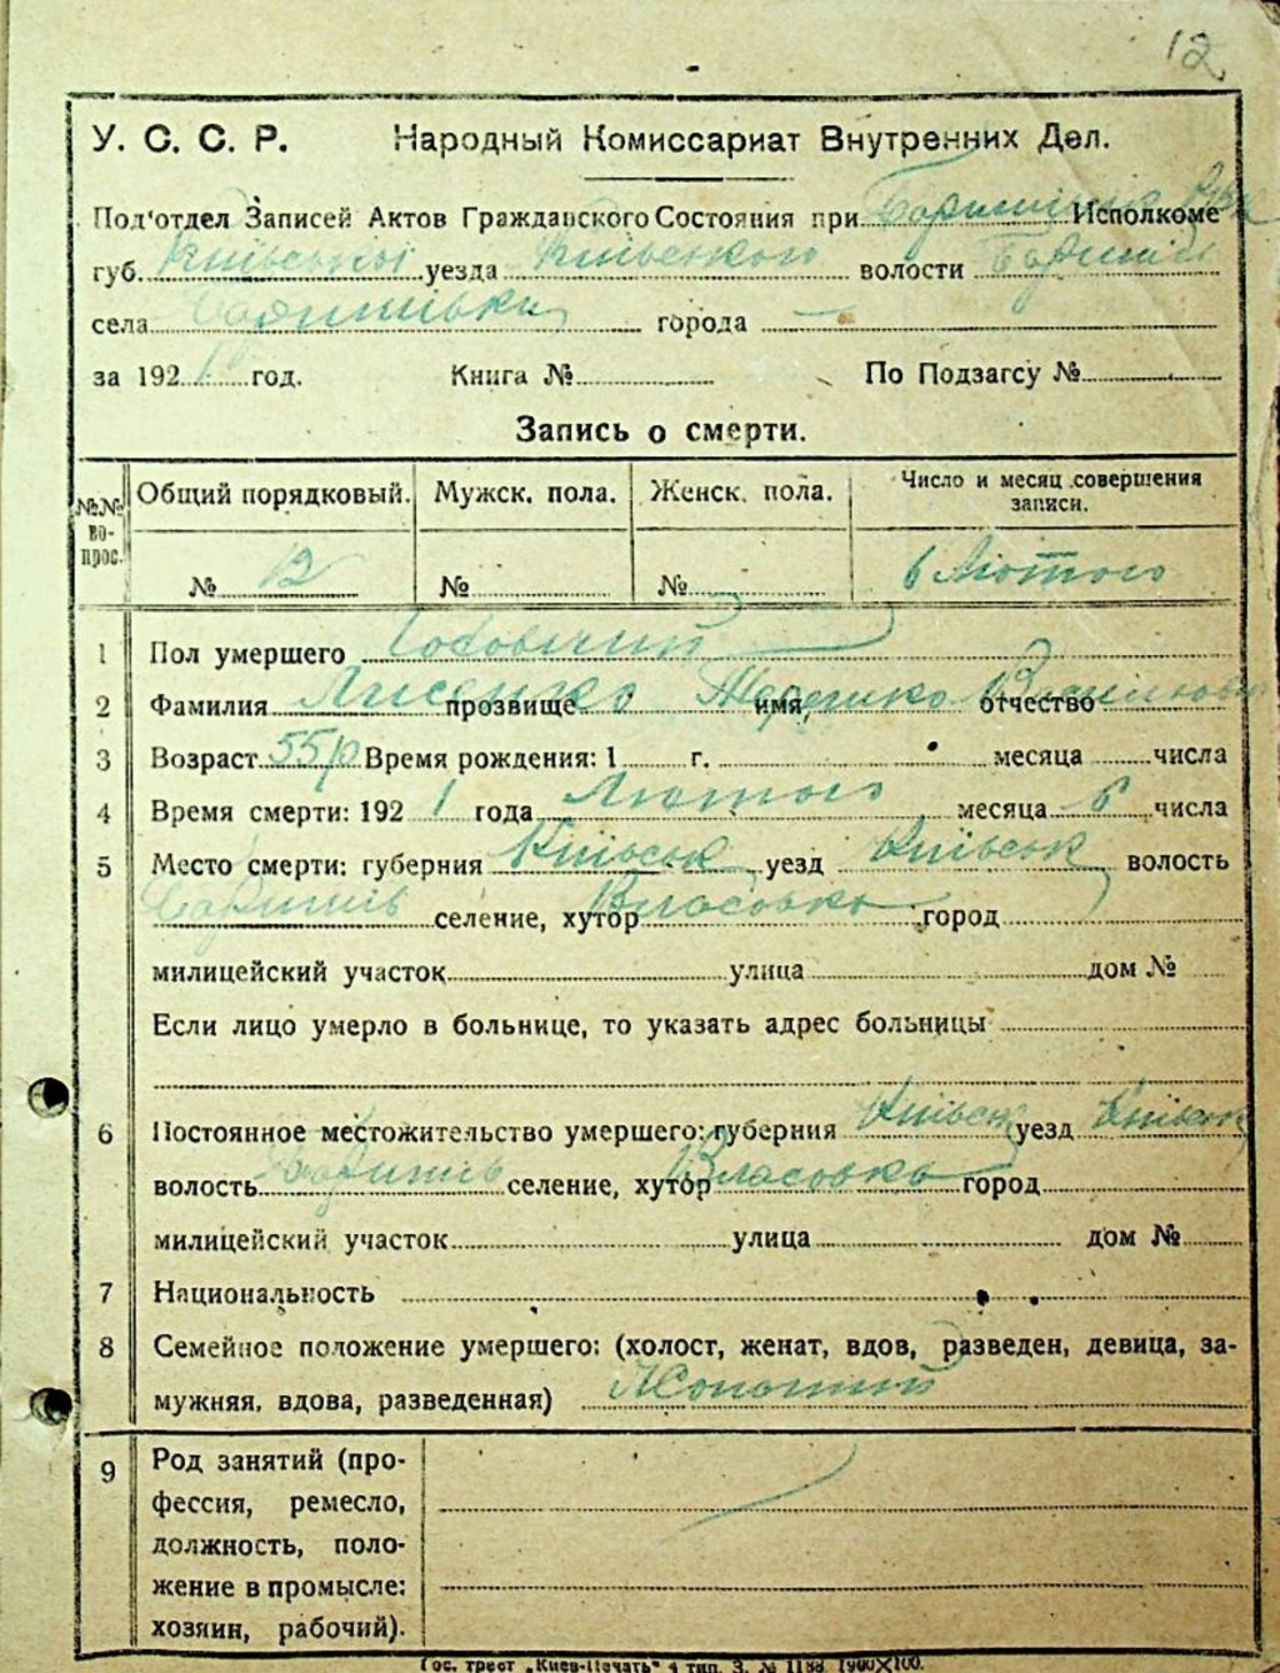 12
У. С. С. Р. Народный Комиссариат Внутренних Дел.
Под'отдел Записей Актов Гражданского Состояния при Исполкоме
губ. Київської уезда Київського волости
села города —
за 1921 год. Книга № По Подзагсу №
Запись о смерти.
№№ вопрос. Общий порядковый. Мужск. пола. Женск. пола. Число и месяц совершения записи.
№ 12 № № 6 Лютого
1 Пол умершего Чоловічий
2 Фамилия Лисенко прозвище имя, отчество
3 Возраст 55 р Время рождения: 1 г. месяца числа
4 Время смерти: 192 1 года Лютого месяца 6 числа
5 Место смерти: губерния Київськ уезд Київськ волость
селение, хутор Власовка город
милицейский участок улица дом №
Если лицо умерло в больнице, то указать адрес больницы
6 Постоянное местожительство умершего: губерния Київськ уезд Київськ
волость селение, хутор Власовка город
милицейский участок улица дом №
7 Национальность
8 Семейное положение умершего: (холост, женат, вдов, разведен, девица, за-
мужняя, вдова, разведенная) Жонатий
9 Род занятий (про-
фессия, ремесло,
должность, поло-
жение в промысле:
хозяин, рабочий).
Гос. трест „Киев-Печать" 4 тип. З. № 1188 1900×100.